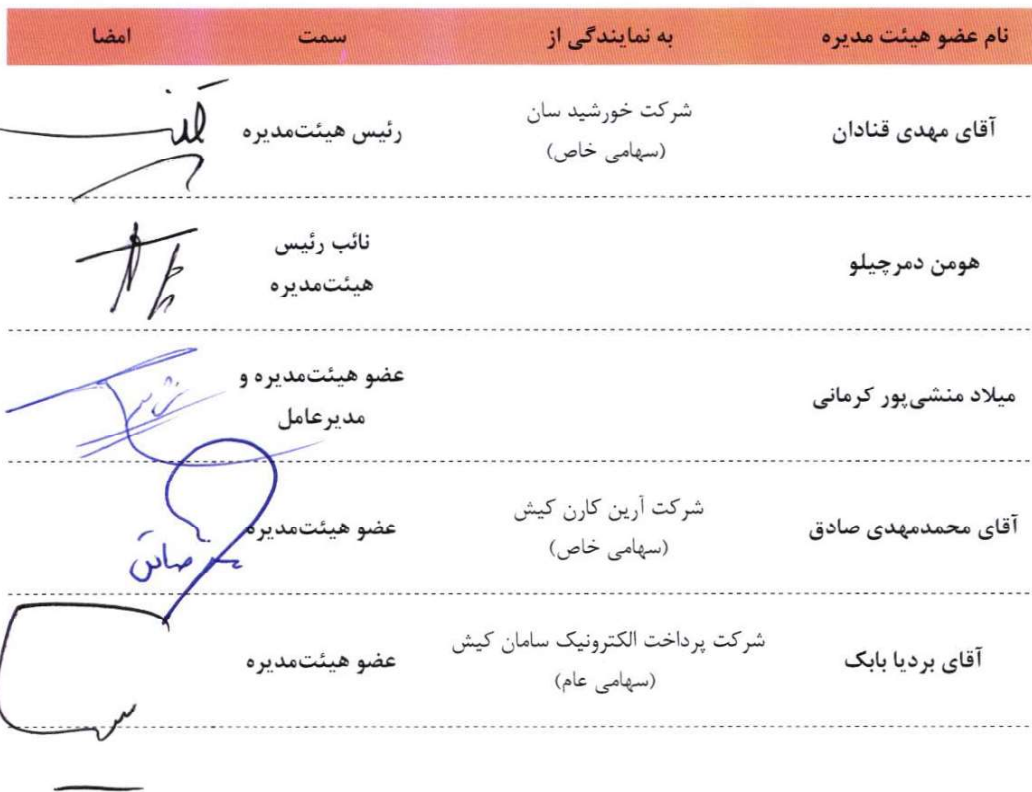 نام عضو هیئت مدیره به نمایندگی از سمت امضا
آقای مهدی قنادان شرکت خورشید سان (سهامی خاص) رئیس هیئت‌مدیره
هومن دمرچیلو نائب رئیس هیئت‌مدیره
میلاد منشی‌پور کرمانی عضو هیئت‌مدیره و مدیرعامل
آقای محمدمهدی صادق شرکت آرین کارن کیش (سهامی خاص) عضو هیئت‌مدیره
صادق
آقای بردیا بابک شرکت پرداخت الکترونیک سامان کیش (سهامی عام) عضو هیئت‌مدیره